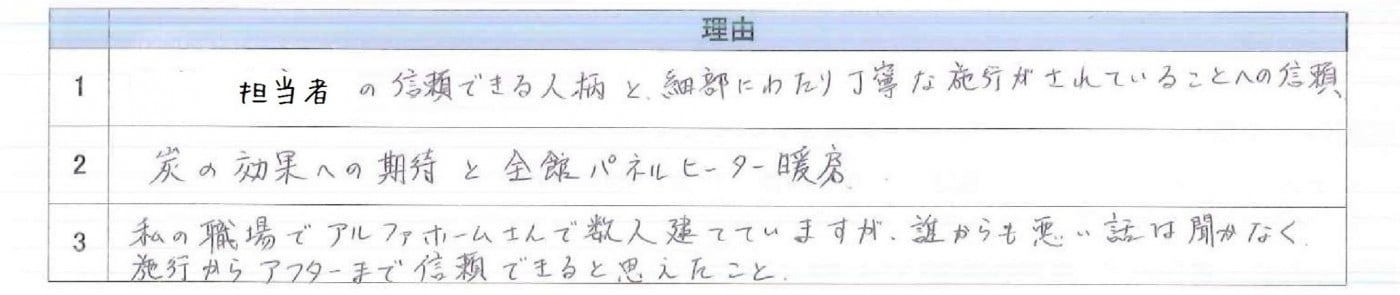 理由
1 担当者 の信頼できる人柄と、細部にわたり丁寧な施行がされていることへの信頼、
2 炭の効果への期待と全館パネルヒーター暖房
3 私の職場でアルファホームさんで数人建てていますが、誰からも悪い話は聞かなく、
施行からアフターまで信頼できると思えたこと、